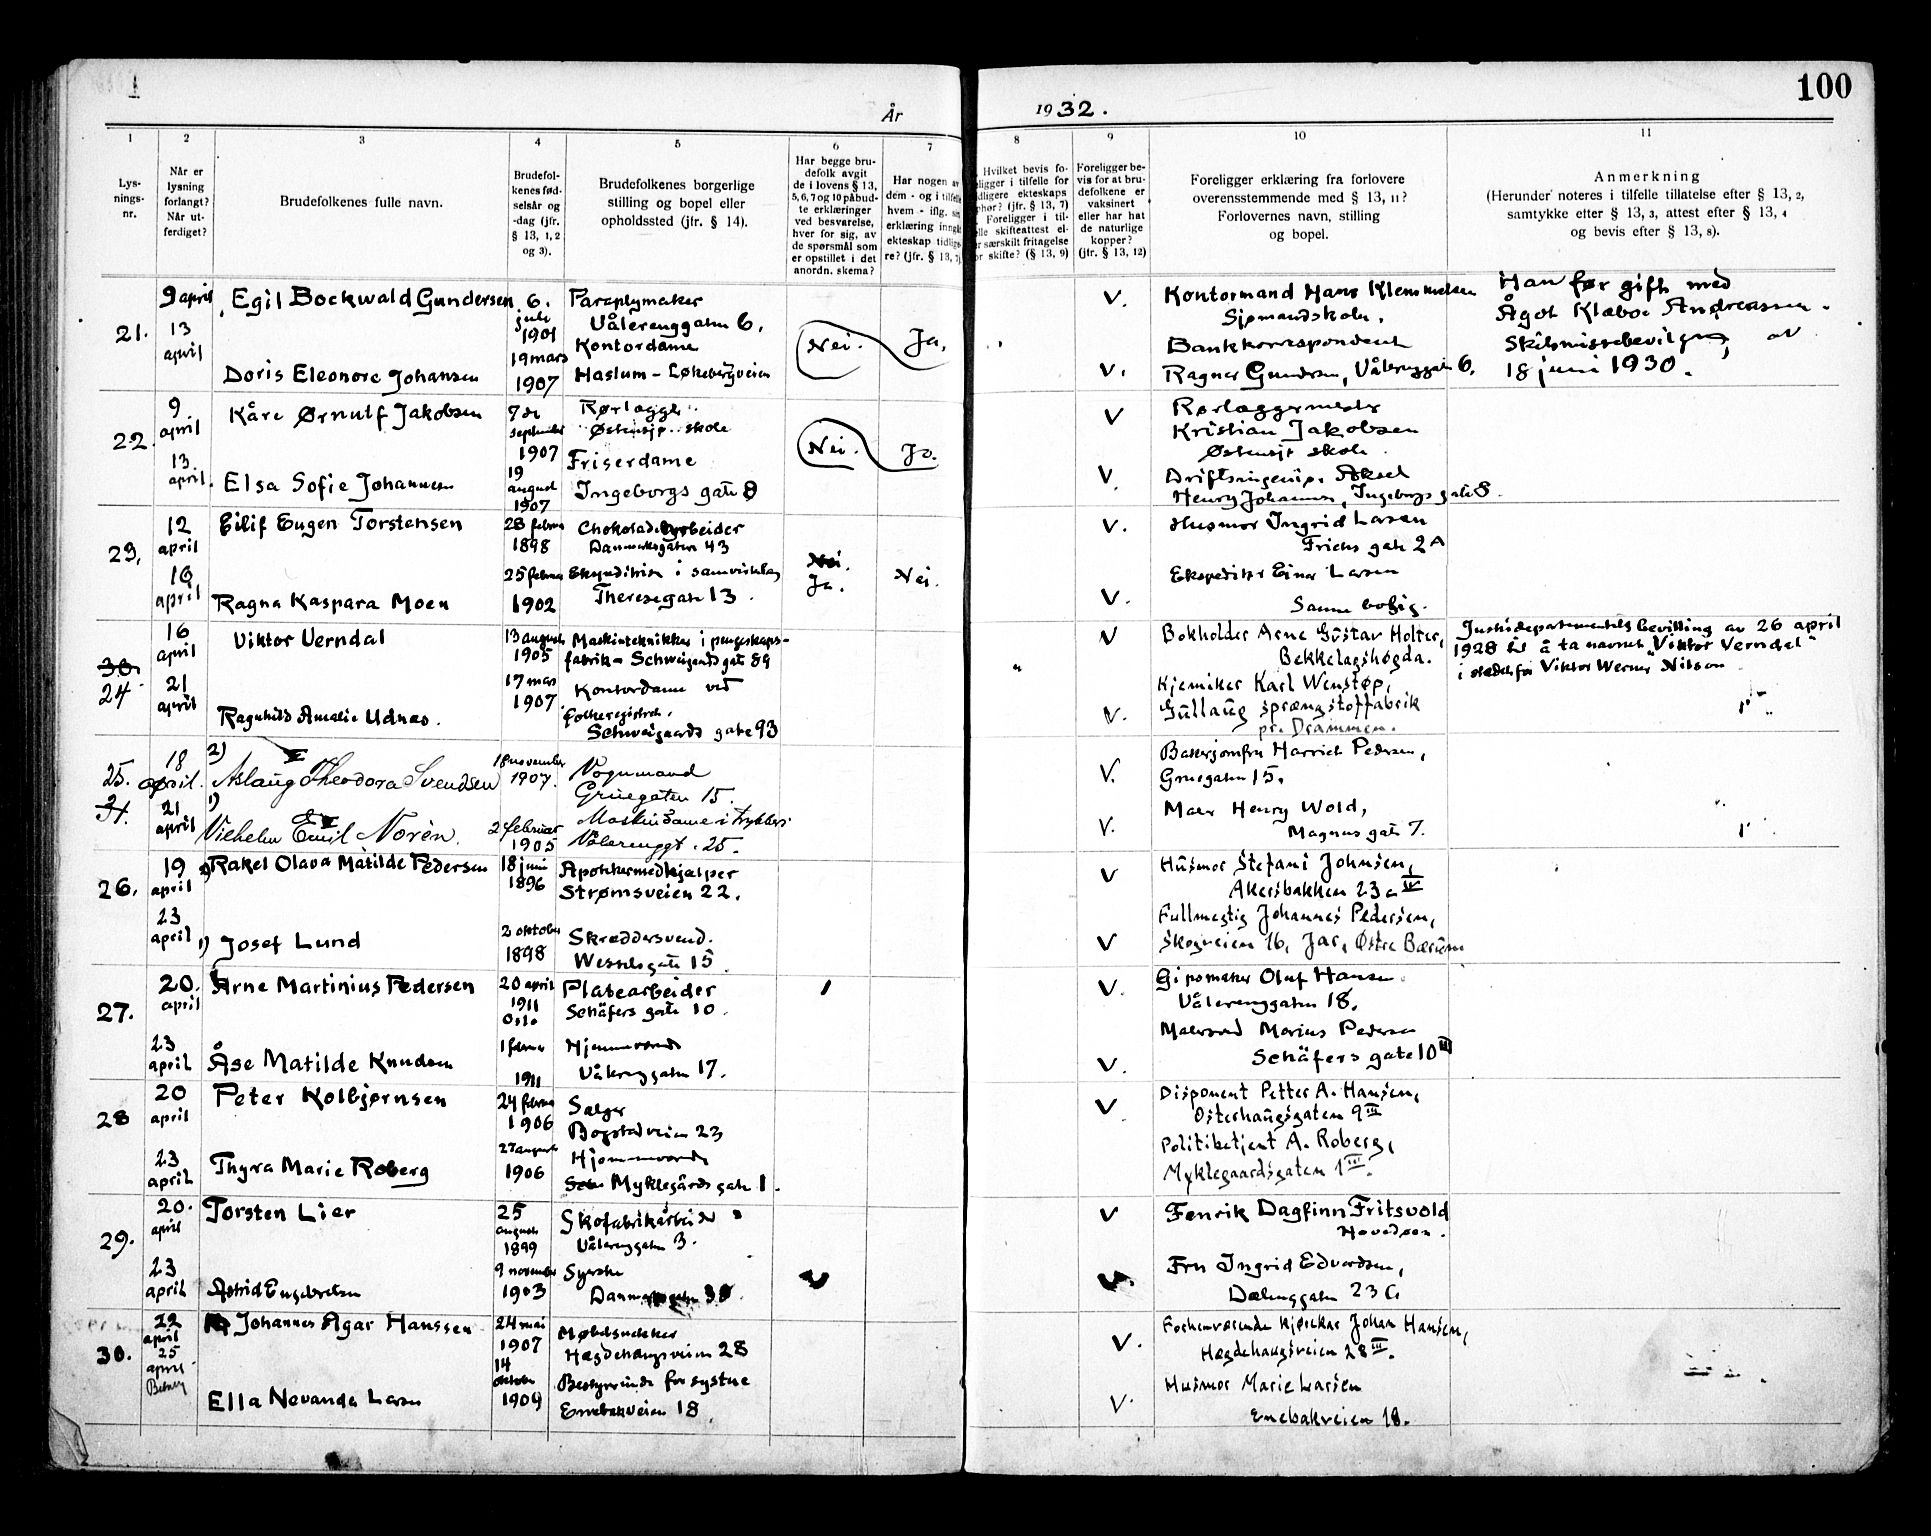 1
År
1932.
100
1
2
3
4
5
6
7
8
9
10
11
Lys-
nings-
nr.
Når er
lysning
forlangt?
Når ut-
ferdiget?
Brudefolkenes fulle navn.
Brudefol-
kenes fød-
selsår og
-dag (jfr.
§ 13, 1, 2
og 3).
Brudefolkenes borgerlige
stilling og bopel eller
opholdssted (jfr. § 14).
Har begge bru-
defolk avgit
de i lovens § 13,
5, 6, 7 og 10 påbud-
te erklæringer
ved besvarelse,
hver for sig, av
de spørsmål som
er opstillet i det
anordn. skema?
Har nogen av
dem - og i tilfelle
hvem - iflg. sin
erklæring inngått
ekteskap tidlige-
re? (jfr. § 13, 7)
Hvilket bevis fo-
religger i tilfelle for
tidligere ekteskaps
ophør? (jfr. § 13, 7)
Foreligger i til-
felle skifteattest el-
ler særskilt fritagelse
for skifte? (§ 13, 9)
Foreligger be-
vis for at bru-
defolkene er
vaksinert
eller har hat
de naturlige
kopper?
(jfr. § 13, 12)
Foreligger erklæring fra forlovere
overensstemmende med § 13, 11?
Forlovernes navn, stilling
og bopel.
Anmerkning
(Herunder noteres i tilfelle tillatelse efter § 13, 2,
samtykke efter § 13, 3, attest efter § 13, 4
og bevis efter § 13, 8).
21.
9 april
13
april
Egil Bockwald Gundersen
6.
juli
1901
Paraplymaker
Vålerenggaten 6.
Doris Eleonore Johansen
19 mars
1907
Kontordame
Haslum - Løkebergveien
Nei.
Ja.
V.
V.
Kontormand Hans Klemmetsen
Sjømandskole.
Bankkorrespondent
Ragnar Gundersen, Vålerenggaten 6.
Han før gift med
Ågot Klæboe Andreassen.
Skilsmissebevilgning av
18 juni 1930.
22
9.
april
13.
april.
Kåre Ørnulf Jakobsen
7de
september
1907
Rørlægger
Østensjø skole
Elsa Sofie Johannesen
19
august
1907
Friserdame
Ingeborgs gate 8
Nei.
Ja.
V
V
Rørlæggermester
Kristian Jakobsen
Østensjø skole.
Driftsingeniør Aksel
Henry Johannesen, Ingeborgs gate 8.
23.
12
april
16
april
Eilif Eugen Torstensen
28 februar
1898
Chokoladearbeider
Danmarksgaten 43
Ragna Kaspara Moen
25 februar
1902
Ekspeditrise i samvirkelag
Theresegate 13.
Nei.
Ja.
Nei.
V.
V.
Husmor Ingrid Larsen
Frichs gate 2A
Ekspeditør Einar Larsen
Samme bolig.
30
24
16
april
21
april
Viktor Verndal
13 august
1905
Maskintekniker i pengeskaps-
fabrik - Schweigaards gate 89
Ragnhild Amalie Udnæs.
17 mars
1907
Kontordame ved
folkeregistret.
Schweigaards gate 93
V
V.
Bokholder Arne Gustav Holter,
Bekkelagshøgda.
Kjemiker Karl Wenstøp,
Gullaug sprængstoffabrik
pr. Drammen.
Justisdepartementets bevilling av 26 april
1928 til å ta navnet "Viktor Verndal"
i stedet for Viktor Werner Nilson
25.
18
april.
21
april
2)
Aslaug Theodora Svendsen
18 november
1907.
Vognmand
Gruegaten 15.
1)
Vilhelm Emil Norèn.
2 februar
1905
Maskindame i trykkeri
Vålerenggt. 25.
V.
V.
Bakerjomfru Harriet Pedersen,
Gruegaten 15.
Maler Henry Wold,
Magnus gate 7.
26.
19
april
23
april
2) Rakel Olava Matilde Pedersen
18 juni
1896
Apotekermedhjælper
Strømsveien 22.
1) Josef Lund
2 oktober
1898
Skræddersvend.
Wesselsgate 15
V
V
Husmor Stefani Johnsen,
Akersbakken 23a IV
Fullmegtig Johannes Pedersen,
Skogveien 16, Jar, Østre Bærum
27.
20.
april
23
april
Arne Martinius Pedersen
20 april
1911
Oslo
Platearbeider
Schäfers gate 10.
Åse Matilde Knudsen
1 februar
1911
Hjemmeværende
Vålerenggaten 17.
V.
V.
Gipsmaker Oluf Hansen
Vålerenggaten 18.
Malersvend Marius Pedersen
Schäfers gate 10 III
28
20
april
23
april
Peter Kolbjørnsen
24 februar
1906
Sælger
Bogstadveien 23
Thyra Marie Roberg
27 august
1906
Hjemmeværende
Myklegårds gate 1.
V.
Disponent Petter A. Hansen,
Osterhausgaten 9 III
Politibetjent A. Roberg,
Myklegaardsgaten 1 III.
29.
20.
april
23
april
Torsten Lier
25
august
1899
Skofabrikarbeider
Vålerenggaten 3.
Astrid Engebretsen
9 november
1903
Syerske
Danmarksgaten 30
V
V
V
Fenrik Dagfinn Fritsvold
Hovedøen.
Fru Ingrid Edvardsen,
Dælenggaten 23 G
30.
22
april
25
april
Johannes Agar Hanssen
24 mai
1907
Møbelsnekker
Hægdehaugsveien 28
Ella Nevanda Larsen
14
oktober
1909
Bestyrerinde for systue
Enebakveien 18.
V.
V.
Forhenværende kjørekar Johan Hansen,
Hægdehaugsveien 28 III.
Husmor Marie Larsen
Enebakveien 18.